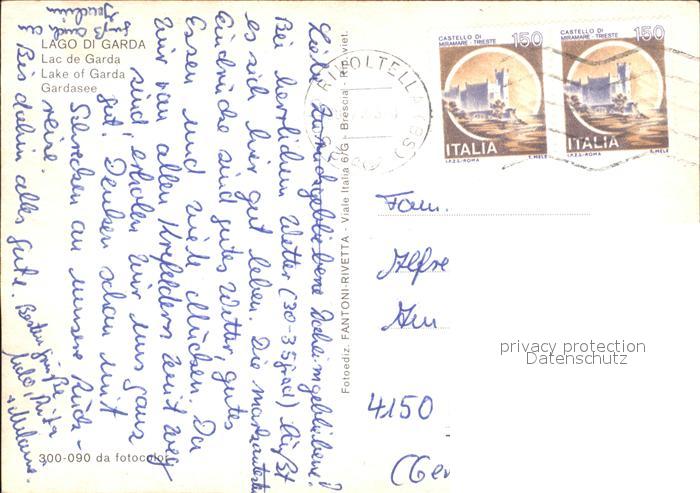 LAGO DI GARDA
Lac de Garda
Lake of Garda
Gardasee
Liebe zurückgebliebene Daheimgebliebene!
Bei herrlichem Wetter (30-35 grad) läßt
es sich hier gut leben. Die markantesten
Eindrücke sind gutes Wetter, gutes
Essen und viele Mücken. Da
wir von allen Krefeldern weit weg
sind, erholen wir uns ganz
gut. Denken schon mit
Schrecken an unsere Rück-
reise.
Bis dahin alles Gute.
300-090 da fotocolor
Fotoediz. FANTONI-RIVETTA - Viale Italia 6/G - Brescia - Rip. viet.
RIVOLTELLA (BS)
CASTELLO DI
MIRAMARE - TRIESTE
150
ITALIA
I.P.Z.S.-ROMA
E. MELE
CASTELLO DI
MIRAMARE - TRIESTE
150
ITALIA
I.P.Z.S.-ROMA
E. MELE
Fam.
Alfre
Am
4150
(Ger
privacy protection
Datenschutz